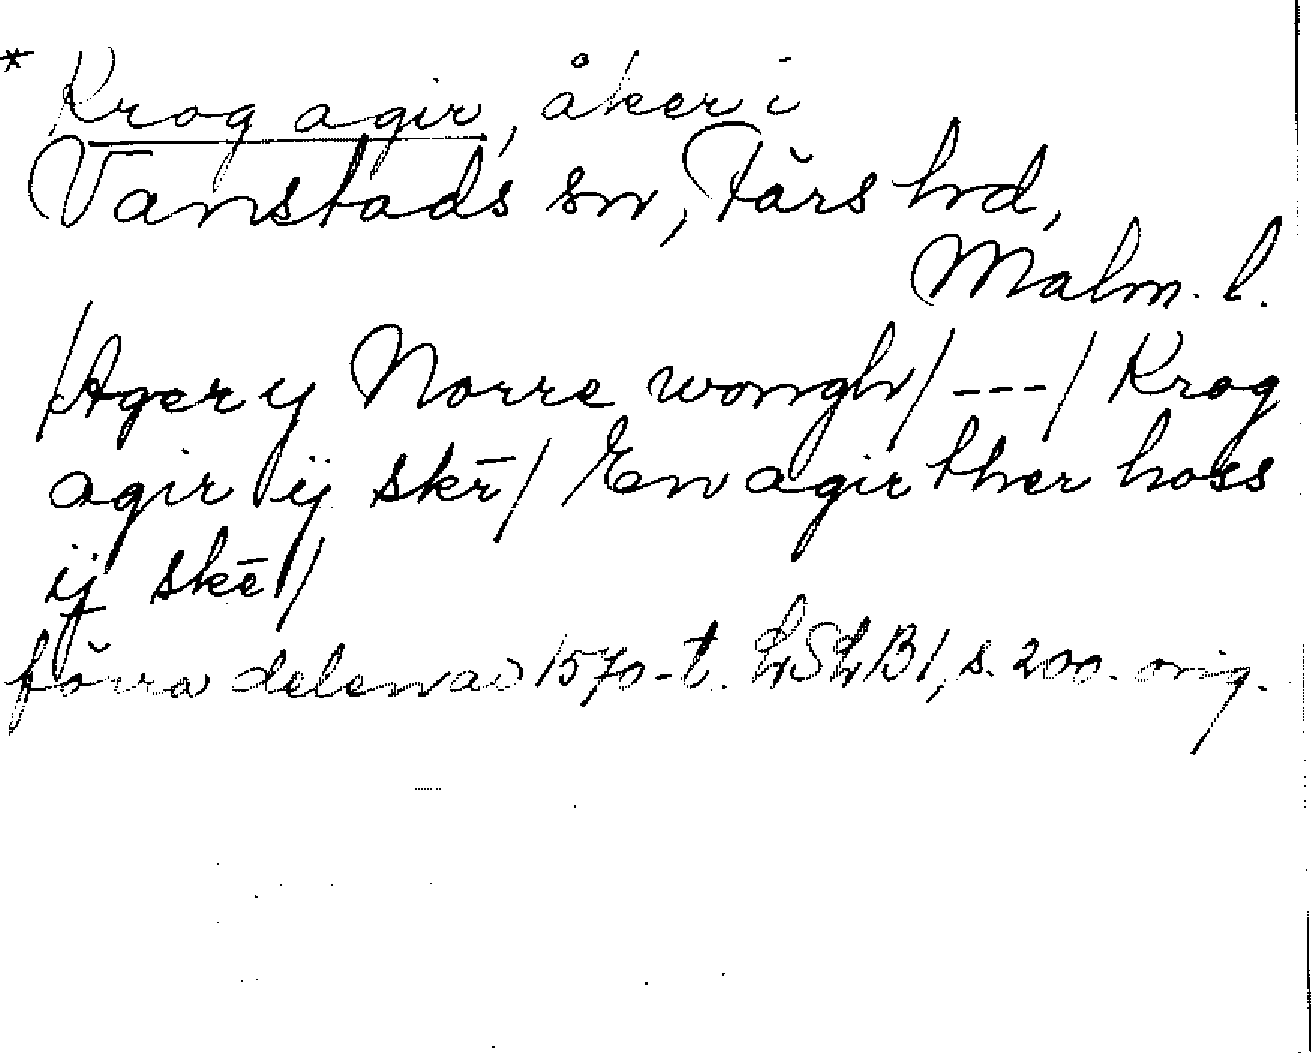 * Krog agir, åker i
Vanstads sn, Färs hd,
Malm. l.
/Ager y Norre wongh/---/Krog
agir ij skē/ En agir ther hoss
ij skē/
förra delen av 1570-t. LSLB1, s. 200. orig.